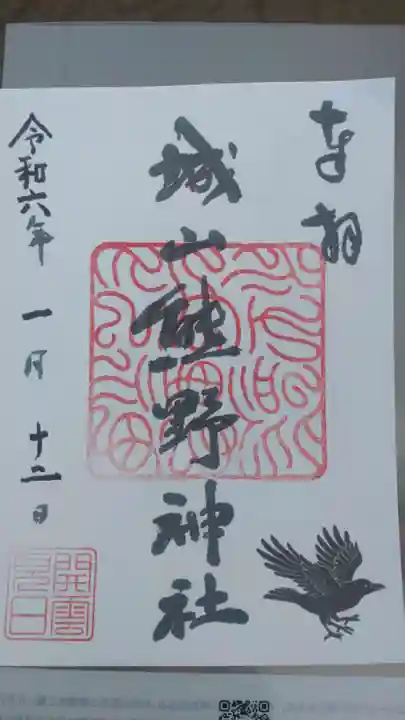 奉拝
城山熊野神社
令和六年 一月 十二日